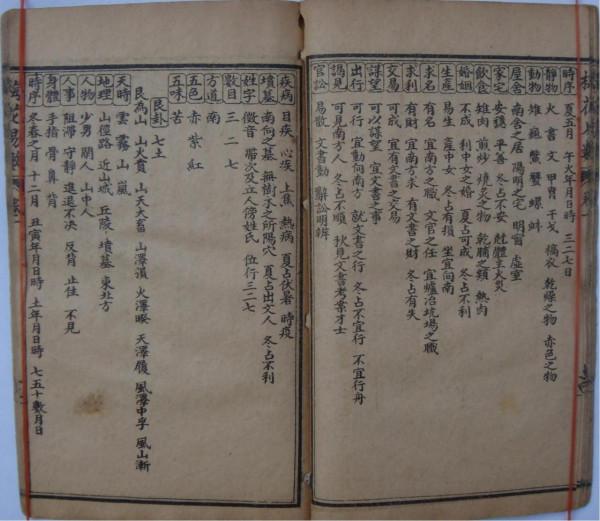 梅花易數
時序 夏五月 午火年月日時 三二七日
靜物 火 書 文 甲冑 干戈 槁衣 乾燥之物 赤色之物
動物 雉 龜 鱉 蟹 螺 蚌
屋舍 南舍之居 陽明之宅 明窗 虛室
家宅 安穩 平善 冬占不安 尅體主火災
飲食 雉肉 煎炒 燒炙之物 乾脯之類 熱肉
婚姻 不成 利中女之婚 夏占可成 冬占不利
生產 易生 產中女 冬占有損 坐宜向南
求名 有名 宜南方之職 文官之任 宜爐冶坑場之職
求利 有財 宜南方求 有文書之財 冬占有失
交易 可成 宜有文書之交易
謀望 可以謀望 宜文書之事
出行 可行 宜動向南方 就文書之行 冬占不宜行 不宜行舟
謁見 可見南方人 冬占不順 秋見文書考案才士
官訟 易散 文書動 辭訟明辨
疾病 目疾 心疾 上焦 熱病 夏占伏暑 時疫
墳墓 南向之墓 無樹木之所陽穴 夏占出文人 冬占不利
姓字 徵音 帶次及立人傍姓氏 位行三二七
數目 三 二 七
方道 南
五色 赤 紫 紅
五味 苦
艮卦 七土
艮為山 山火賁 山天大畜 山澤損 火澤暌 天澤履 風澤中孚 風山漸
天時 雲 霧 山嵐
地理 山徑路 近山城 丘陵 墳墓 東北方
人物 少男 閒人 山中人
人事 阻滯 守靜 進退不决 反背 止住 不見
身體 手指 骨 鼻 背
時序 冬春之月 十二月 丑寅年月日時 土年月日時 七五十數月日
梅花易數